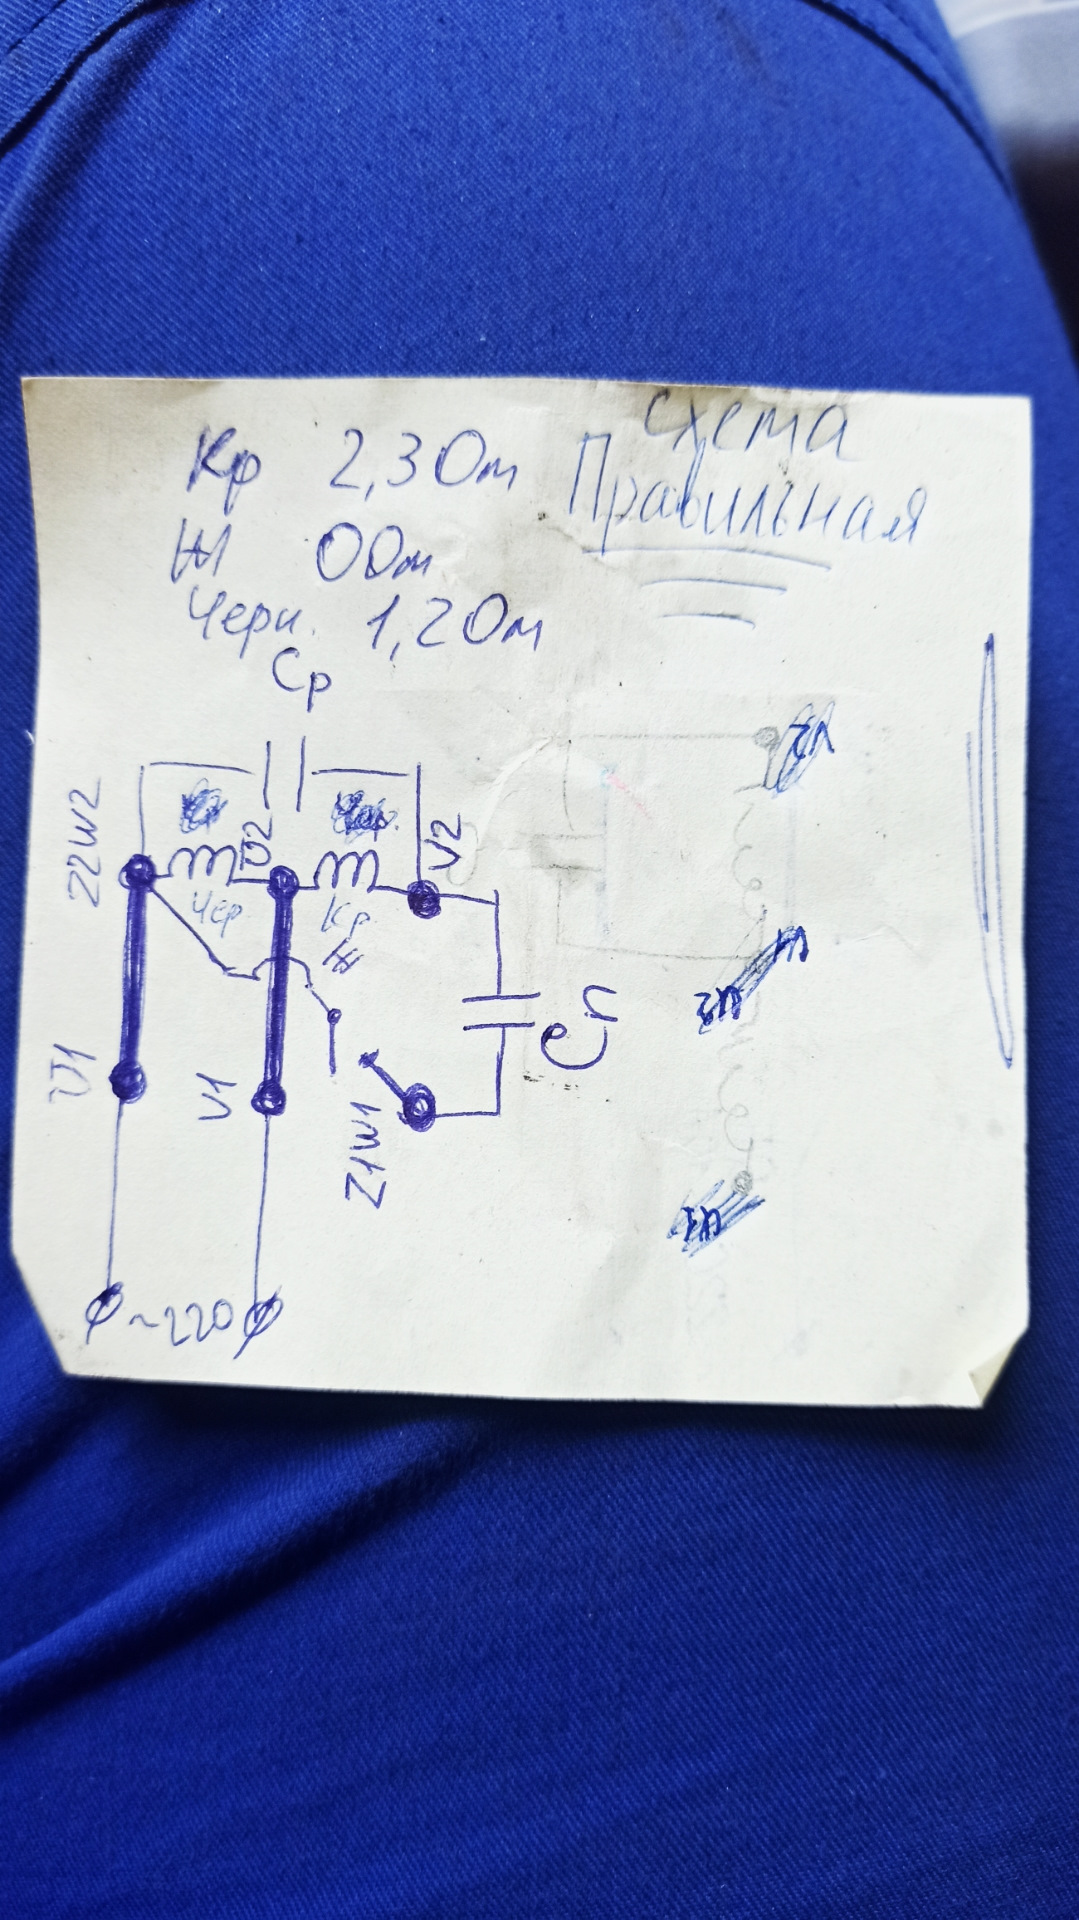 Схема
Правильная
Кр 2,3 Ом
Ж 0 Ом
Черн. 1,2 Ом
Ср
Z2W2
U2
V2
Чер
Кр
Ж
Сп
U1
V1
Z1W1
~220